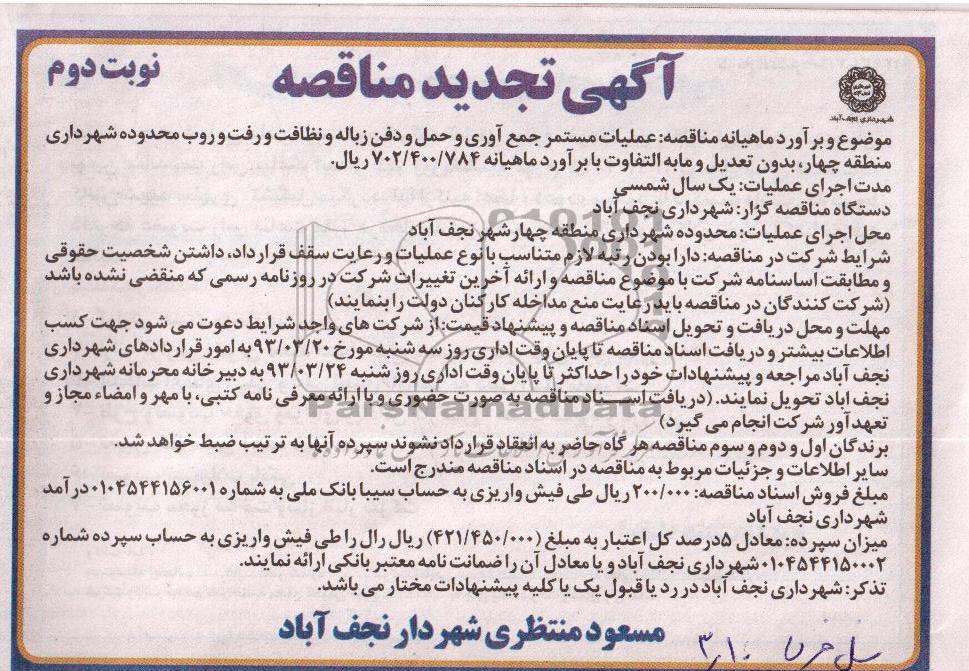 آگهی تجدید مناقصه
نوبت دوم
شهرداری نجف‌آباد
موضوع و برآورد ماهیانه مناقصه: عملیات مستمر جمع آوری و حمل و دفن زباله و نظافت و رفت و روب محدوده شهرداری
منطقه چهار، بدون تعدیل و مابه التفاوت با برآورد ماهیانه ۷۰۲/۴۰۰/۷۸۴ ریال.
مدت اجرای عملیات: یک سال شمسی
دستگاه مناقصه گزار: شهرداری نجف آباد
محل اجرای عملیات: محدوده شهرداری منطقه چهار شهر نجف آباد
شرایط شرکت در مناقصه: دارا بودن رتبه لازم متناسب با نوع عملیات و رعایت سقف قرارداد، داشتن شخصیت حقوقی
و مطابقت اساسنامه شرکت با موضوع مناقصه و ارائه آخرین تغییرات شرکت در روزنامه رسمی که منقضی نشده باشد
(شرکت کنندگان در مناقصه باید رعایت منع مداخله کارکنان دولت را بنمایند)
مهلت و محل دریافت و تحویل اسناد مناقصه و پیشنهاد قیمت: از شرکت های واجد شرایط دعوت می شود جهت کسب
اطلاعات بیشتر و دریافت اسناد مناقصه تا پایان وقت اداری روز سه شنبه مورخ ۹۳/۰۳/۲۰ به امور قراردادهای شهرداری
نجف آباد مراجعه و پیشنهادات خود را حداکثر تا پایان وقت اداری روز شنبه ۹۳/۰۳/۲۴ به دبیرخانه محرمانه شهرداری
نجف اباد تحویل نمایند. (دریافت اسـناد مناقصه به صورت حضوری و با ارائه معرفی نامه کتبی، با مهر و امضاء مجاز و
تعهدآور شرکت انجام می گیرد)
برندگان اول و دوم و سوم مناقصه هر گاه حاضر به انعقاد قرارداد نشوند سپرده آنها به ترتیب ضبط خواهد شد.
سایر اطلاعات و جزئیات مربوط به مناقصه در اسناد مناقصه مندرج است.
مبلغ فروش اسناد مناقصه: ۲۰۰/۰۰۰ ریال طی فیش واریزی به حساب سیبا بانک ملی به شماره ۰۱۰۴۵۴۴۱۵۶۰۰۱ درآمد
شهرداری نجف آباد
میزان سپرده: معادل ۵درصد کل اعتبار به مبلغ (۴۲۱/۴۵۰/۰۰۰) ریال رال را طی فیش واریزی به حساب سپرده شماره
۰۱۰۴۵۴۴۱۵۰۰۰۲ شهرداری نجف آباد و یا معادل آن را ضمانت نامه معتبر بانکی ارائه نمایند.
تذکر: شهرداری نجف آباد در رد یا قبول یک یا کلیه پیشنهادات مختار می باشد
مسعود منتظری شهردار نجف آباد
ParsNamadData